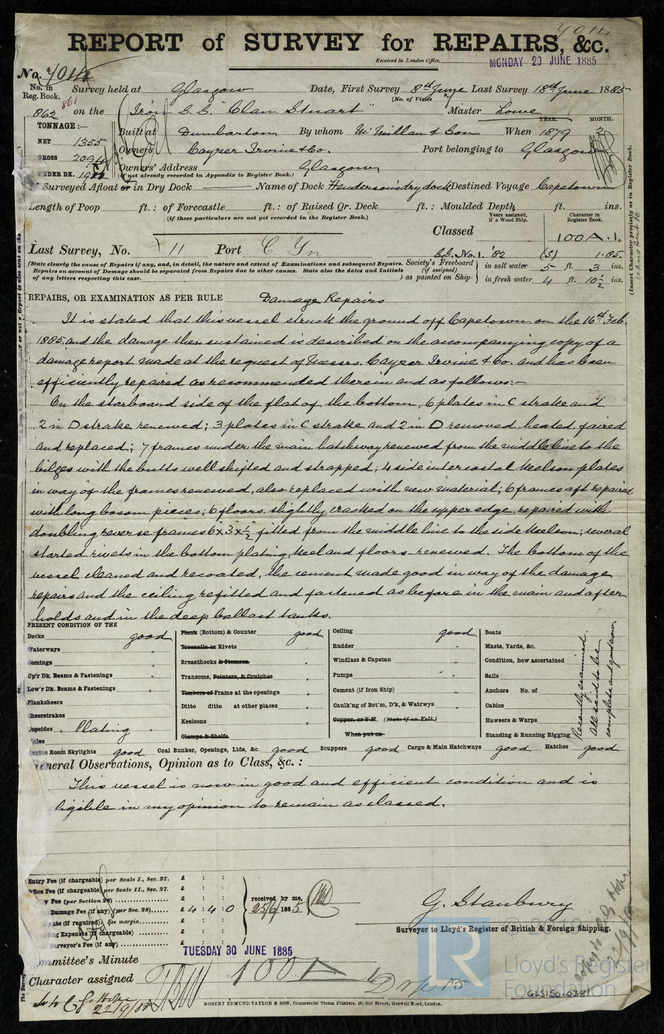 REPORT of SURVEY for REPAIRS, &c.
Received in London Office. MONDAY 29 JUNE 1885
No. in Reg. Book. Survey held at Glasgow Date, First Survey 8th June Last Survey 18th June 1885
(No. of Visits )
862 861 on the Iron S.S. "Clan Stuart" Master Lowe
TONNAGE:— Built at Dumbarton By whom McMillan & Son When 1879 YEAR. MONTH.
NET 1355
GROSS 2094 Owners Cayzer Irvine & Co. Port belonging to Glasgow
UNDER DK. Owners' Address Glasgow
(if not already recorded in Appendix to Register Book.)
If Surveyed Afloat or in Dry Dock Name of Dock Henderson's dry dock Destined Voyage Capetown
Length of Poop ft.: of Forecastle ft.: of Raised Qr. Deck ft.: Moulded Depth ft. ins.
(if these particulars are not yet recorded in the Register Book.)
Years assigned, if a Wood Ship. Character in Register Book.
Classed 100A.1.
Last Survey, No. 11 Port
S.S. No. 1. '82 (5) 1.85
(State clearly the cause of Repairs if any, and, in detail, the nature and extent of Examinations and subsequent Repairs. Reports on account of Damage should be separated from Repairs due to other causes. State also the dates and Initials of any letters respecting this case.
Society's Freeboard (if assigned) as painted on Ship } in salt water 5 ft. 3 ins.
in fresh water 4 ft. 10½ ins.
REPAIRS, OR EXAMINATION AS PER RULE Damage Repairs
It is stated that this vessel struck the ground off Capetown on the 16th Feb,
1885, and the damage then sustained is described on the accompanying copy of a
damage report made at the request of Messrs. Cayzer Irvine & Co. and has been
efficiently repaired as recommended therein and as follows:—
On the starboard side of the flat of the bottom, 6 plates in C strake and
2 in D strake renewed; 3 plates in C strake and 2 in D removed heated faired
and replaced; 7 frames under the main hatchway renewed from the middle line to the
bilges with the butts well shifted and strapped; 4 side intercostal keelson plates
in way of the frames renewed, also replaced with new material; 6 frames aft repaired
with long bosom pieces; 6 floors, slightly cracked on the upper edge, repaired with
doubling reverse frames 6 x 3 x ½ fitted from the middle line to the side keelson; several
started rivets in the bottom plating, keel and floors renewed. The bottom of the
vessel cleaned and recoated, the cement made good in way of the damage
repairs and the ceiling refitted and fastened as before in the main and after
holds and in the deep ballast tanks.
PRESENT CONDITION OF THE
Decks good
Waterways "
Comings "
Up'r Dk. Beams & Fastenings "
Low'r Dk. Beams & Fastenings "
Planksheers
Sheerstrakes
Topsides . Plating
Plank (Bottom) & Counter good
Treenails or Rivets "
Breasthooks & Stemson "
Transoms, Pointers, & Crutches "
Timbers of Frame at the openings "
Ditto ditto at other places "
Keelsons "
Clamps & Shelfs
Ceiling good
Rudder "
Windlass & Capstan "
Pumps "
Cement (if Iron Ship) "
Caulk'ng of Bot'm, D'k, & Watrwys "
Copper, or Y.M. (State if on Felt.)
When put on
Boats
Masts, Yards, &c.
Condition, how ascertained
Sails
Anchors No. of
Cables
Hawsers & Warps
Standing & Running Rigging
Recently examined.
All said to be
complete and good now
Engine Room Skylights good Coal Bunker, Openings, Lids, &c. good Scuppers good Cargo & Main Hatchways good Hatches good
General Observations, Opinion as to Class, &c. :
This vessel is now in good and efficient condition and is
eligible in my opinion to remain as classed.
Entry Fee (if chargeable) per Scale I., Sec. 27. £ : :
Office Fee (if chargeable) per Scale II., Sec. 27. £ : :
Fee (per Section 28) £ : :
Damage Fee (if any) (per Sec. 28) £ 4 : 4 : 0
(if required). See margin. £ : :
Expenses (if chargeable) £ : :
Surveyor's Fee (if any) £ : :
received by me, 25/6 1885
G. Stanbury
Surveyor to Lloyd's Register of British & Foreign Shipping.
Committee's Minute TUESDAY 30 JUNE 1885
Character assigned 100 A 1
22/9/85
ROBERT EDMUND TAYLOR & SON, Commercial Steam Printers, 19, Old Street, Goswell Road, London.
(Insert Character precisely as in Register Book.
Lloyd's Register
Foundation
GLS150-0381